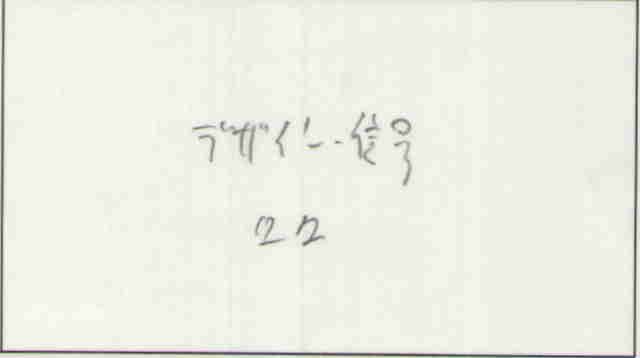 デザイン・信号
22